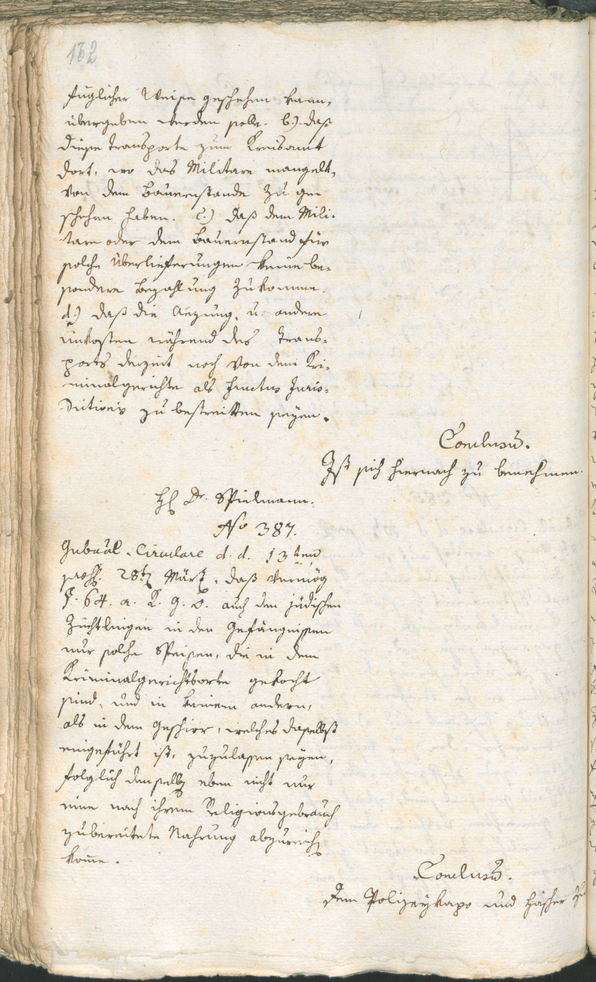 182
füglicher Weise geschehen kann,
übergeben werden solle. b.) daß
diese Transporte zum Kreisamt
dort, wo das Militare mangelt,
von dem Bauernstande zu ge-
schehen haben. c.) daß dem Mili-
tare oder dem Bauernstand für
solche Überlieferungen keine be-
sondere Bezahlung zukomme.
d.) daß die Atzung, u. andere
Unkosten während des Trans-
ports derzeit noch von dem Kri-
minalgerichte als functus Juris-
dictionis zu bestreitten seyen.
Conclusū.
Ist sich hiernach zu benehmen.
H. Dr. Spielmann.
No 387.
Gubāal-Circulare d. d. 13ten
März, daß vermög
§. 64. a. K. g. O. auch den jüdischen
Züchtlingen in den Gefängnissen
nur solche Speisen, die in dem
Kriminalgerichtsorte gekocht
sind, und in keinem andern,
als in dem Geschirr, welches daselbst
eingeführt ist, zuzulassen seyen,
folglich denselben eben nicht nur
eine nach ihrem Religionsgebrauch
zubereitete Nahrung abzureichen
komme.
Conclusū.
Dem Polizeykapo und Häscher zu